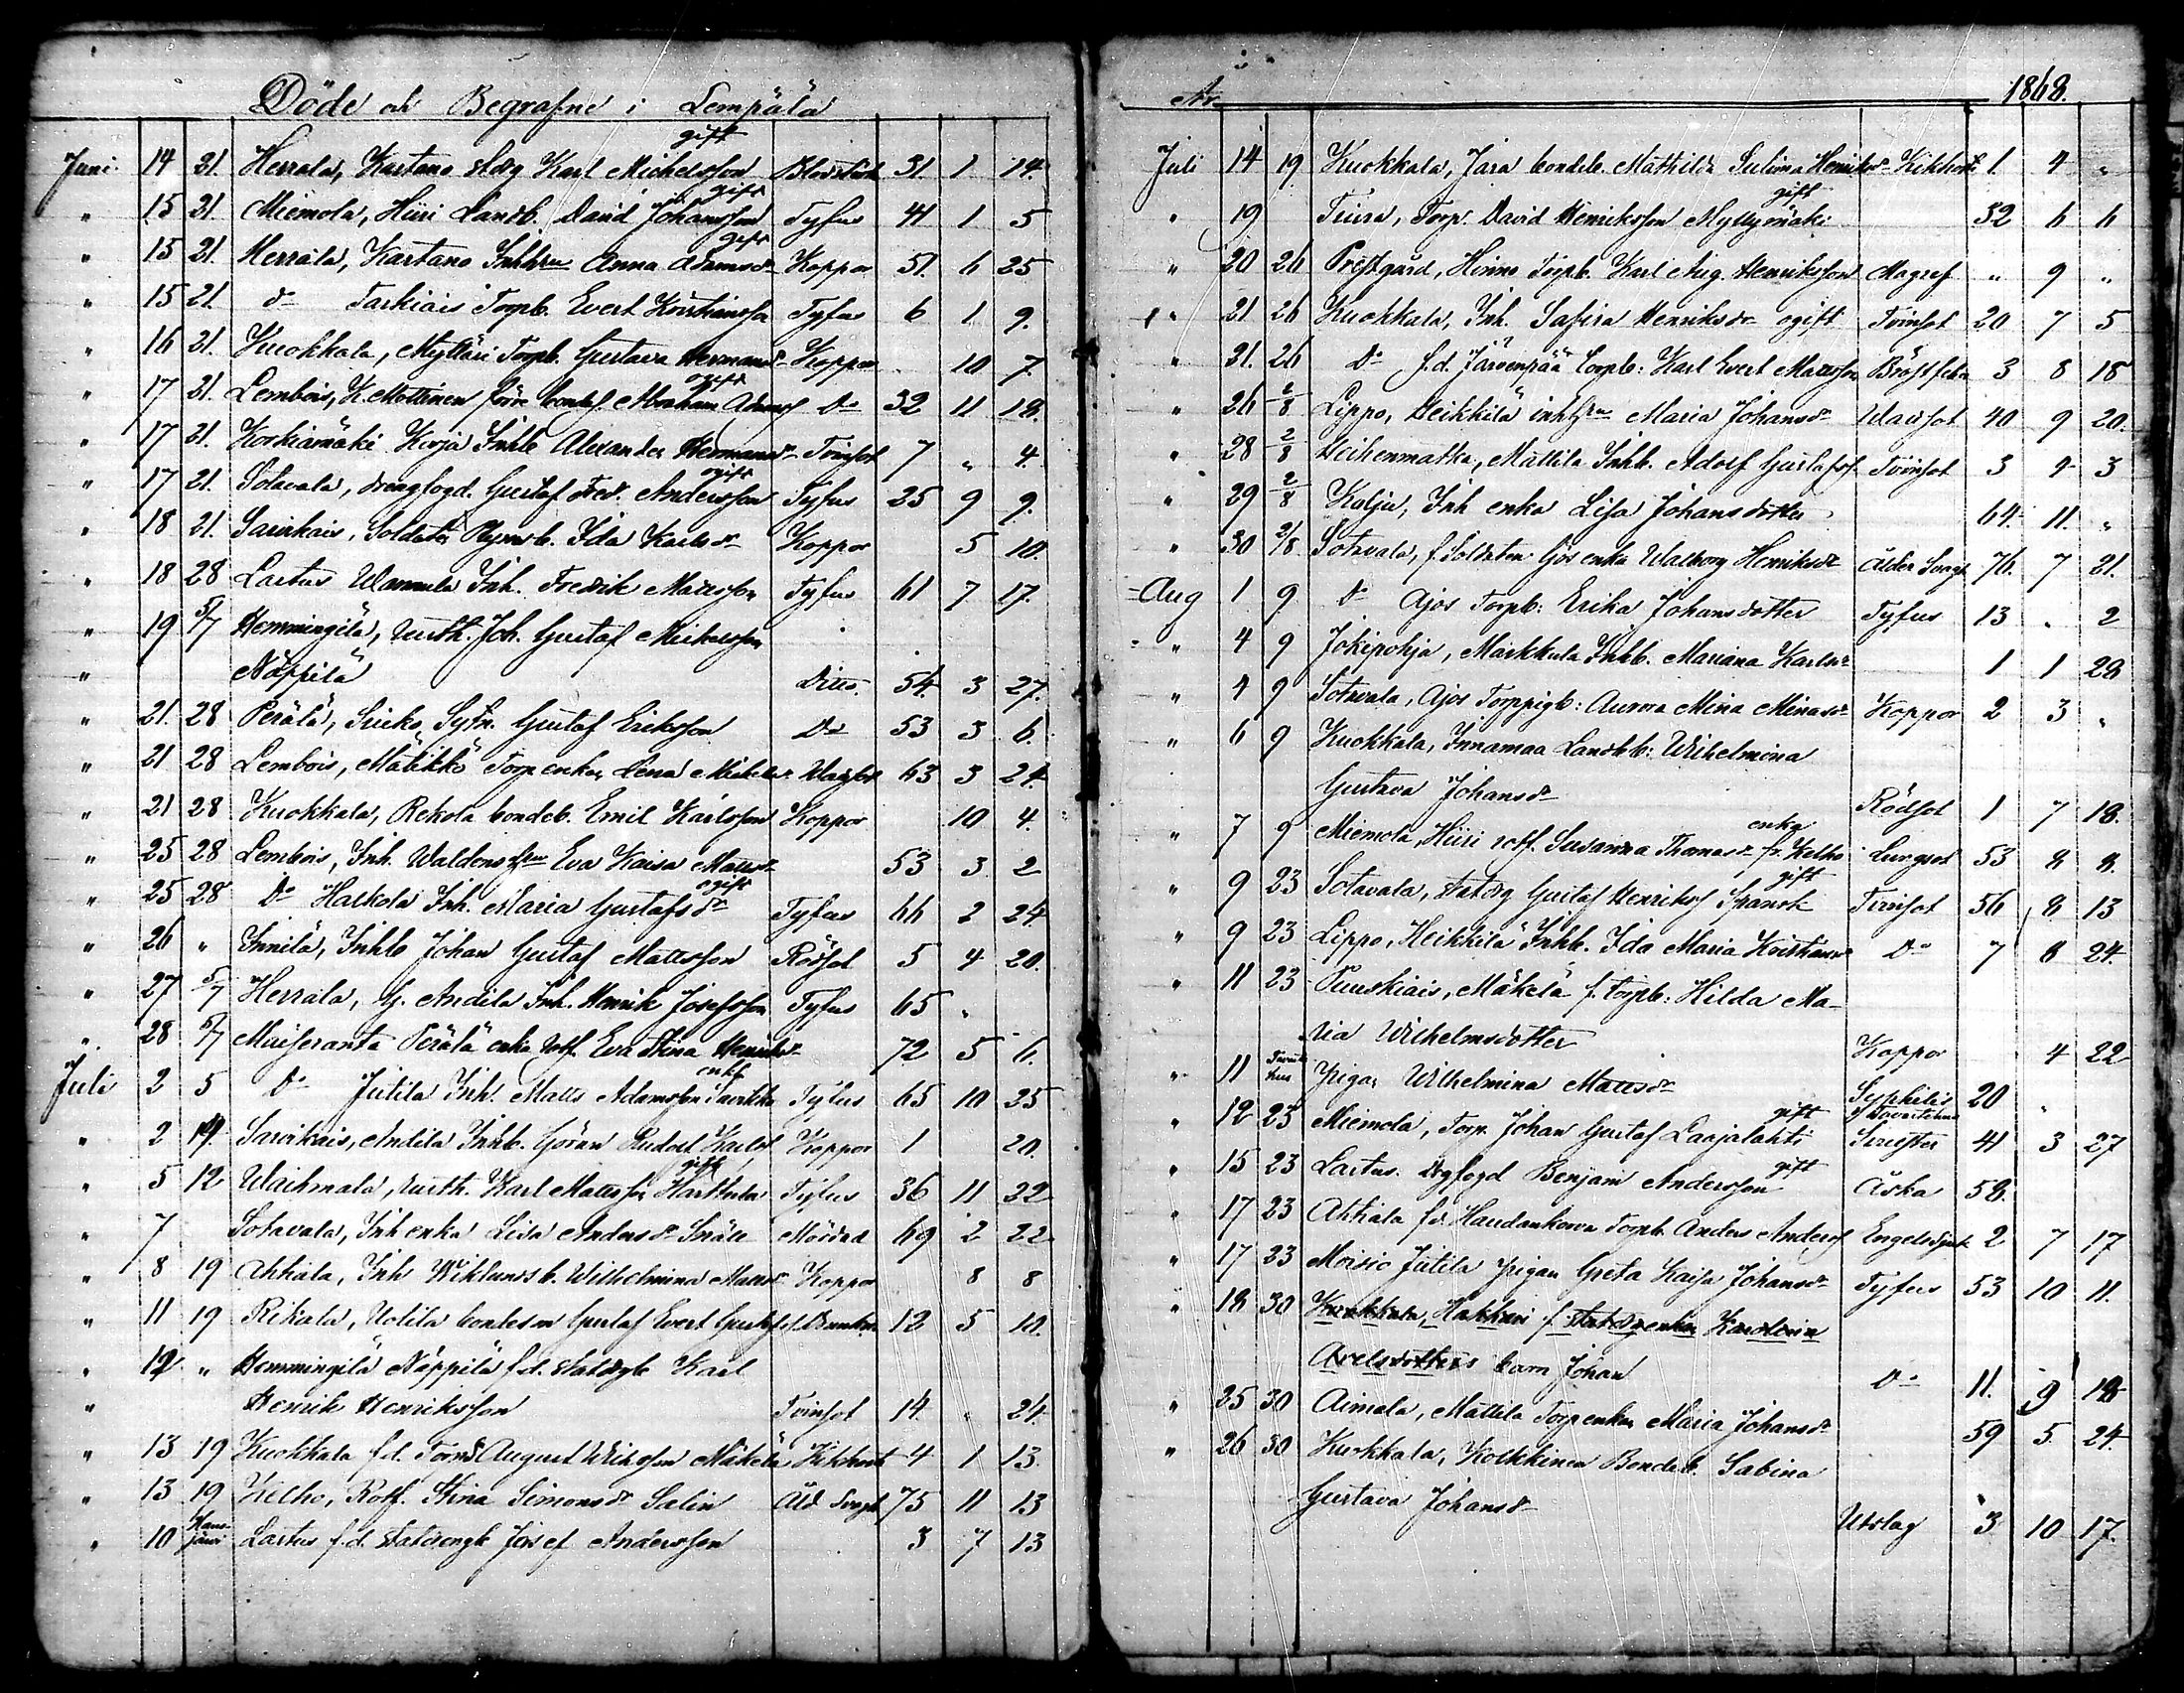 Döde och Begrafne i Lempäla
Juni 14 21. Herrala, Kartano stdrg Karl Michelsson gift Blodstört 31. 1 14.
" 15 21. Miemola, Hiiri Landb. David Johansson gift Tyfus 41 1 5
" 15 21. Herrala, Kartano Inhhru Anna Adamsdr gift Koppor 51. 6 25
" 15 21. do Tarkiais Torpb. Evert Kristiansson Tyfus 6 1 9.
" 16 21. Kuokkala, Myllari Torpb. Gustava Hermansdr Koppor 10 7.
" 17 21. Lembois, K. Mottinen förre bondes. Abraham Adamss ogift Do 32 11 18.
" 17 21. Korkiamäki Kirja Inhb Alexander Tvinsot 7 " 4.
" 17 21. Sotavala, drengfogd. Gustaf Fred. Andersson ogift Tyfus 25 9 9.
" 18 21. Sairikais, Soldaten b. Ida Karlsdr Koppor 5 10.
" 18 28 Lastus Wannula Inh. Fredrik Mattsson Tyfus 61 7 17.
" 19 5/7 Hemmingilä, Joh. Gustaf Mickelsson
" Näppilä Ditto. 54. 3 27.
" 21. 28 Perälä, Sytn. Gustaf Eriksson Do 53 3 6.
" 21 28 Lembois, Mätikkö Torpenkan Lena Mickelsdr 63 3 24.
" 21 28 Kuokkala, Rekola bondeb. Emil Karlsson Koppor 10 4.
" 25 28 Lembois, Inh. Waldens hru Eva Kaisa Mattsdr 53 3 2
" 25 28 Do Halkola Inh. Maria Gustafsdr ogift Tyfus 66 2 24
" 26 " Innilä, Inhb Johan Gustaf Mattsson Rödsot 5 4 20.
" 27 5/7 Herrala, G. Andila Inh. Henrik Josefsson Tyfus 65 "
" 28 5/7 Perälä enka rotf. Eva Stina Henriksdr 72. 5 6.
Juli 2 5 Do Jutila Inh. Matts Adamsson enkl Tyfus 65 10 25
" 2 19. Sarvikais, Andila Inhb. Göran Rudolf Karlss Koppor 1 20.
" 5 12 Waihmala, Karl Mattsson gift Tyfus 36 11 22
" 7 Sotavala, Inh enka Lisa Andersdr Snäll Mördad 69 2 22
" 8 19 Ahtiala, Inh Wiklunds b. Wilhelmina Mattsdr Koppor 8 8
" 11 19 Rikala, Uotila bondeson Gustaf Evert Gustafss 12 5 10.
" 12 " Hemmingilä Näppilä f.d. statdrgb Karl
" Henrik Henriksson Tvinsot 14. " 24.
" 13 19 Kuokkala f.d. August Mäkelä Kikhosta 4 1 13.
" 13 19 Kelho, Rotf. Stina Simonsdr Salin Åld. Svagh 75 11 13
" 10 Haus-järvi Lastus f.d. statdrengb Josef Andersson 3 7 13
År 1868.
Juli 14 19 Kuokkala, Jara bondeb. Mathilda Sulima Henriksdr Kikhosta 1. 4 "
" 19 Tiura, Torp. David Henriksson Myllymäki gift 32 6 6
" 20 26 Prestgård, Himmo Torpb. Karl Aug. Henriksson Magref " 9 "
" 21 26 Kuokkala, Inh. Safira Henriksdr ogift Tvinsot 20 7 5
" 21. 26 Do f.d. Järvenpää Torpb: Karl Evert Mattsson Bröstfeber 3 8 18
" 26 2/8 Lippo, Heikkilä inhhru Maria Johansdr Wattusot 40 9 20.
" 28 2/8 Heikenmatka, Mattila Inhb. Adolf Gustafss. Tvinsot 3 9 3
" 29 2/8 Kalju, Inh enka Lisa Johansdotter 64. 11. "
" 30 2/8 Sotavala, f Soldaten Gös enka Walborg Henriksdr Ålder Svagh 76. 7 21.
Aug 1 9 Do Ajos Torpb: Erika Johansdotter Tyfus 13 " 2
" 4 9 Jokipohja, Markkula Inhb. Mariana Karlsdr 1 1 28
" 4 9 Sotavala, Ajos Torppigb: Aurora Mina Minasdr Koppor 2 3 "
" 6 9 Kuokkala, Innamaa Landbb: Wilhelmina
Gustava Johansdr Rödsot 1 7 18.
" 7 9 Miemola, Hiiri rotf. Susanna Thomasdr fr. Kelho enka Lungsot 53 8 8.
" 9 23 Sotavala, statdrg Gustaf Henrikss Spansk gift Tvinsot 56 8 13
" 9 23 Lippo, Heikkilä Inhb. Ida Maria Kristiansdr Do 7 8 24.
" 11 23 Puuskiais, Mäkelä f. Torpb: Hilda Ma-
ria Wilhelmsdotter Koppor 4 22
" 11 Pigan Wilhelmina Mattsdr Syphilis 20 "
" 12 23 Miemola, Torp. Johan Gustaf Laajalahti gift 41 3 27
" 15 23 Lastus. drgfogd Benjam Andersson gift Åska 58.
" 17 23 Ahtiala fd Haudankorva Torpb. Anders Anderss Engelsksjuk 2 7 17
" 17 23 Moisio Jutila pigan Greta Kaisa Johansdr Tyfus 53 10 11.
" 18 30 Kuokkala, Hakkari f. statdrg enkan Karolina
Axelsdotters barn Johan Do 11. 9 18
" 25 30 Aimala, Mattila Torpenkan Maria Johansdr 59 5 24.
" 26 30 Kuokkala, Kolkkinen Bondeb. Sabina
Gustava Johansdr Utslag 3 10 17.